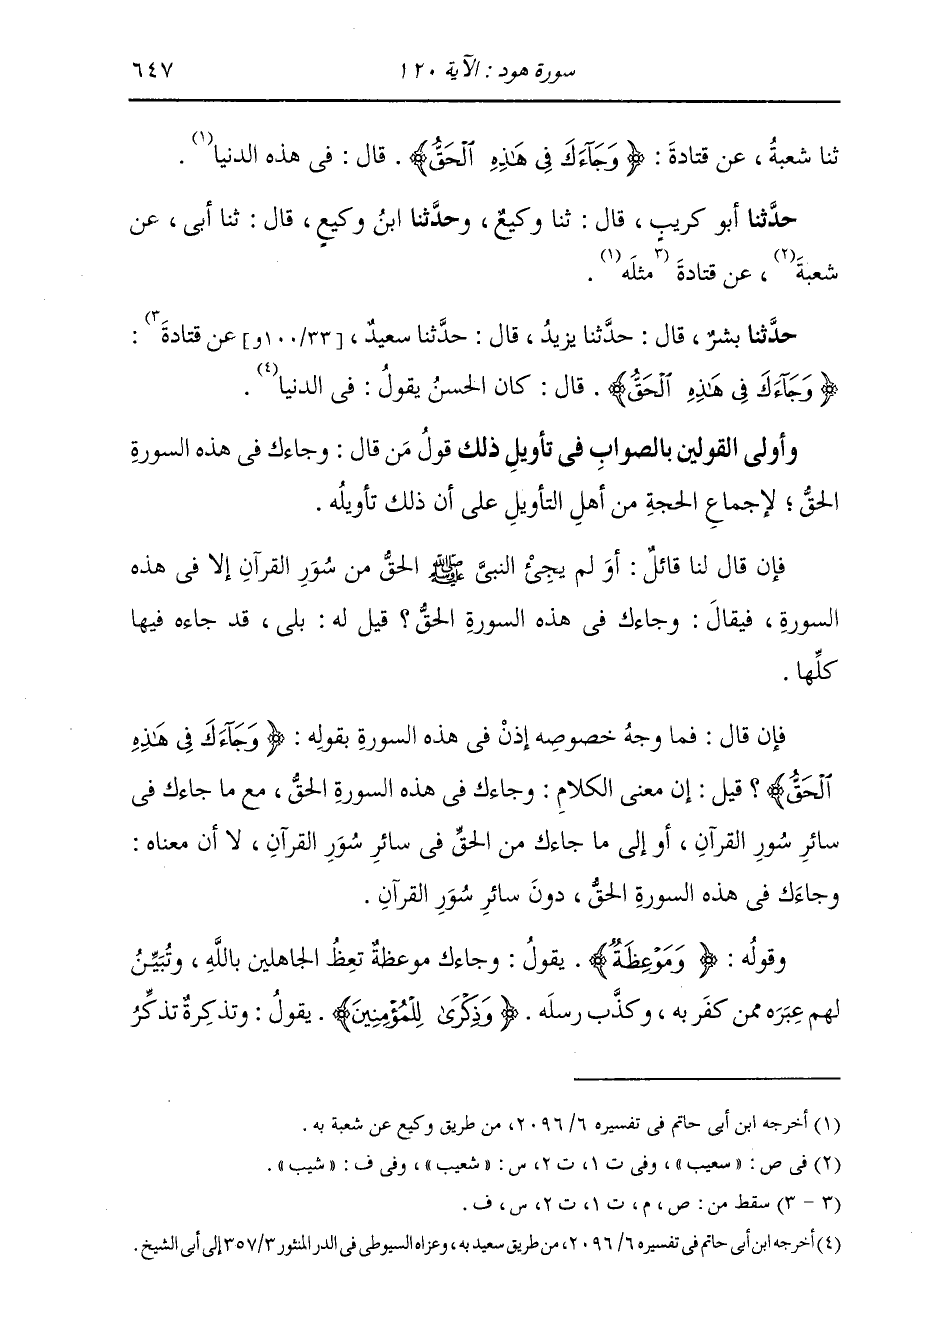 سورة هود : الآية ١٢٠ ٦٤٧
ثنا شعبةُ ، عن قتادةَ : ﴿ وَجَآءَكَ فِى هَٰذِهِ ٱلْحَقُّ ﴾ . قال : فى هذه الدنيا(١) .
حدَّثنا أبو كريبٍ ، قال : ثنا وكيعٌ ، وحدَّثنا ابنُ وكيعٍ ، قال : ثنا أبى ، عن
شعبةَ(٢) ، عن قتادةَ (٣ مثلَه(١) .
حدَّثنا بشرٌ ، قال : حدَّثنا يزيدُ ، قال : حدَّثنا سعيدٌ ، [١٠٠/٣٣و] عن قتادةَ ٣) :
﴿ وَجَآءَكَ فِى هَٰذِهِ ٱلْحَقُّ ﴾ . قال : كان الحسنُ يقولُ : فى الدنيا(٤) .
وأولى القولين بالصوابِ فى تأويلِ ذلك قولُ مَن قال : وجاءك فى هذه السورةِ
الحقُّ ؛ لإجماعِ الحجةِ من أهلِ التأويلِ على أن ذلك تأويلُه .
فإن قال لنا قائلٌ : أوَ لم يجِئْ النبىَّ ﷺ الحقُّ من سُوَرِ القرآنِ إلا فى هذه
السورةِ ، فيقالَ : وجاءك فى هذه السورةِ الحقُّ ؟ قيل له : بلى ، قد جاءه فيها
كلِّها .
فإن قال : فما وجهُ خصوصِه إذنْ فى هذه السورةِ بقولِه : ﴿ وَجَآءَكَ فِى هَٰذِهِ
ٱلْحَقُّ ﴾ ؟ قيل : إن معنى الكلامِ : وجاءك فى هذه السورةِ الحقُّ ، مع ما جاءك فى
سائرِ سُورِ القرآنِ ، أو إلى ما جاءك من الحقِّ فى سائرِ سُوَرِ القرآنِ ، لا أن معناه :
وجاءَك فى هذه السورةِ الحقُّ ، دونَ سائرِ سُوَرِ القرآنِ .
وقولُه : ﴿ وَمَوْعِظَةٌ ﴾ . يقولُ : وجاءك موعظةٌ تعِظُ الجاهلين باللَّهِ ، وتُبَيِّنُ
لهم عِبَرَه ممن كفَر به ، وكذَّب رسلَه . ﴿ وَذِكْرَىٰ لِلْمُؤْمِنِينَ ﴾ . يقولُ : وتذكِرةٌ تذكِّرُ
(١) أخرجه ابن أبى حاتم فى تفسيره ٢٠٩٦/٦، من طريق وكيع عن شعبة به .
(٢) فى ص : « سعيب » ، وفى ت ١، ت ٢، س : « شعيب » ، وفى ف : « شيب » .
(٣ - ٣) سقط من : ص ، م ، ت ١، ت ٢، س ، ف .
(٤) أخرجه ابن أبى حاتم فى تفسيره ٢٠٩٦/٦، من طريق سعيد به ، وعزاه السيوطى فى الدر المنثور ٣٥٧/٣ إلى أبى الشيخ .